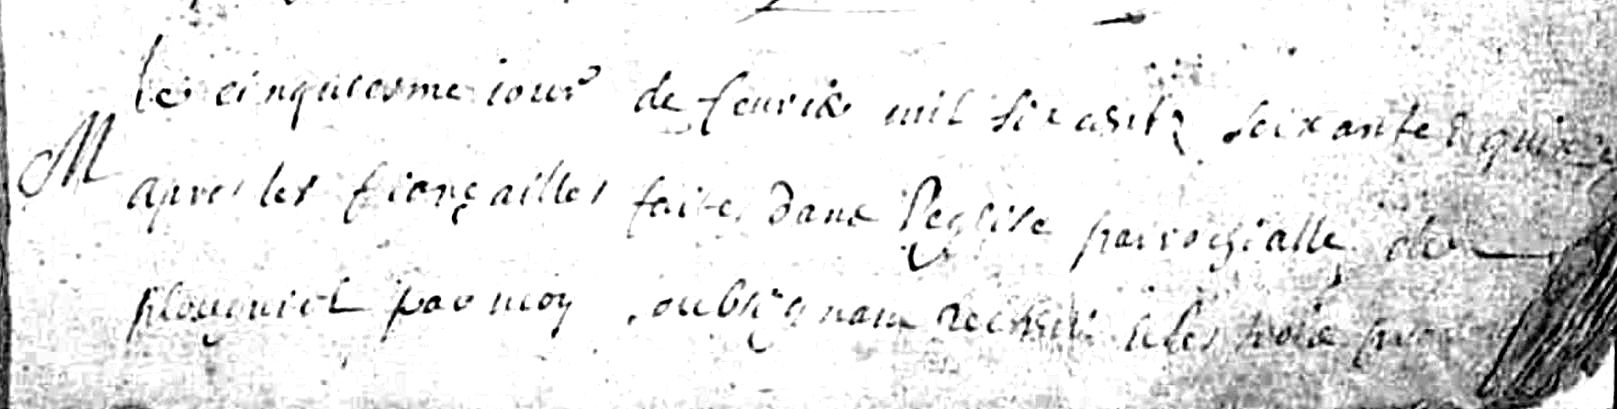 le cinquiesme iour de feurier mil six cents seixante & quinze
M
apres les fiançailles faites dans l'eglise parrochialle de
plougniel par moy soubsignant recteur & les trois